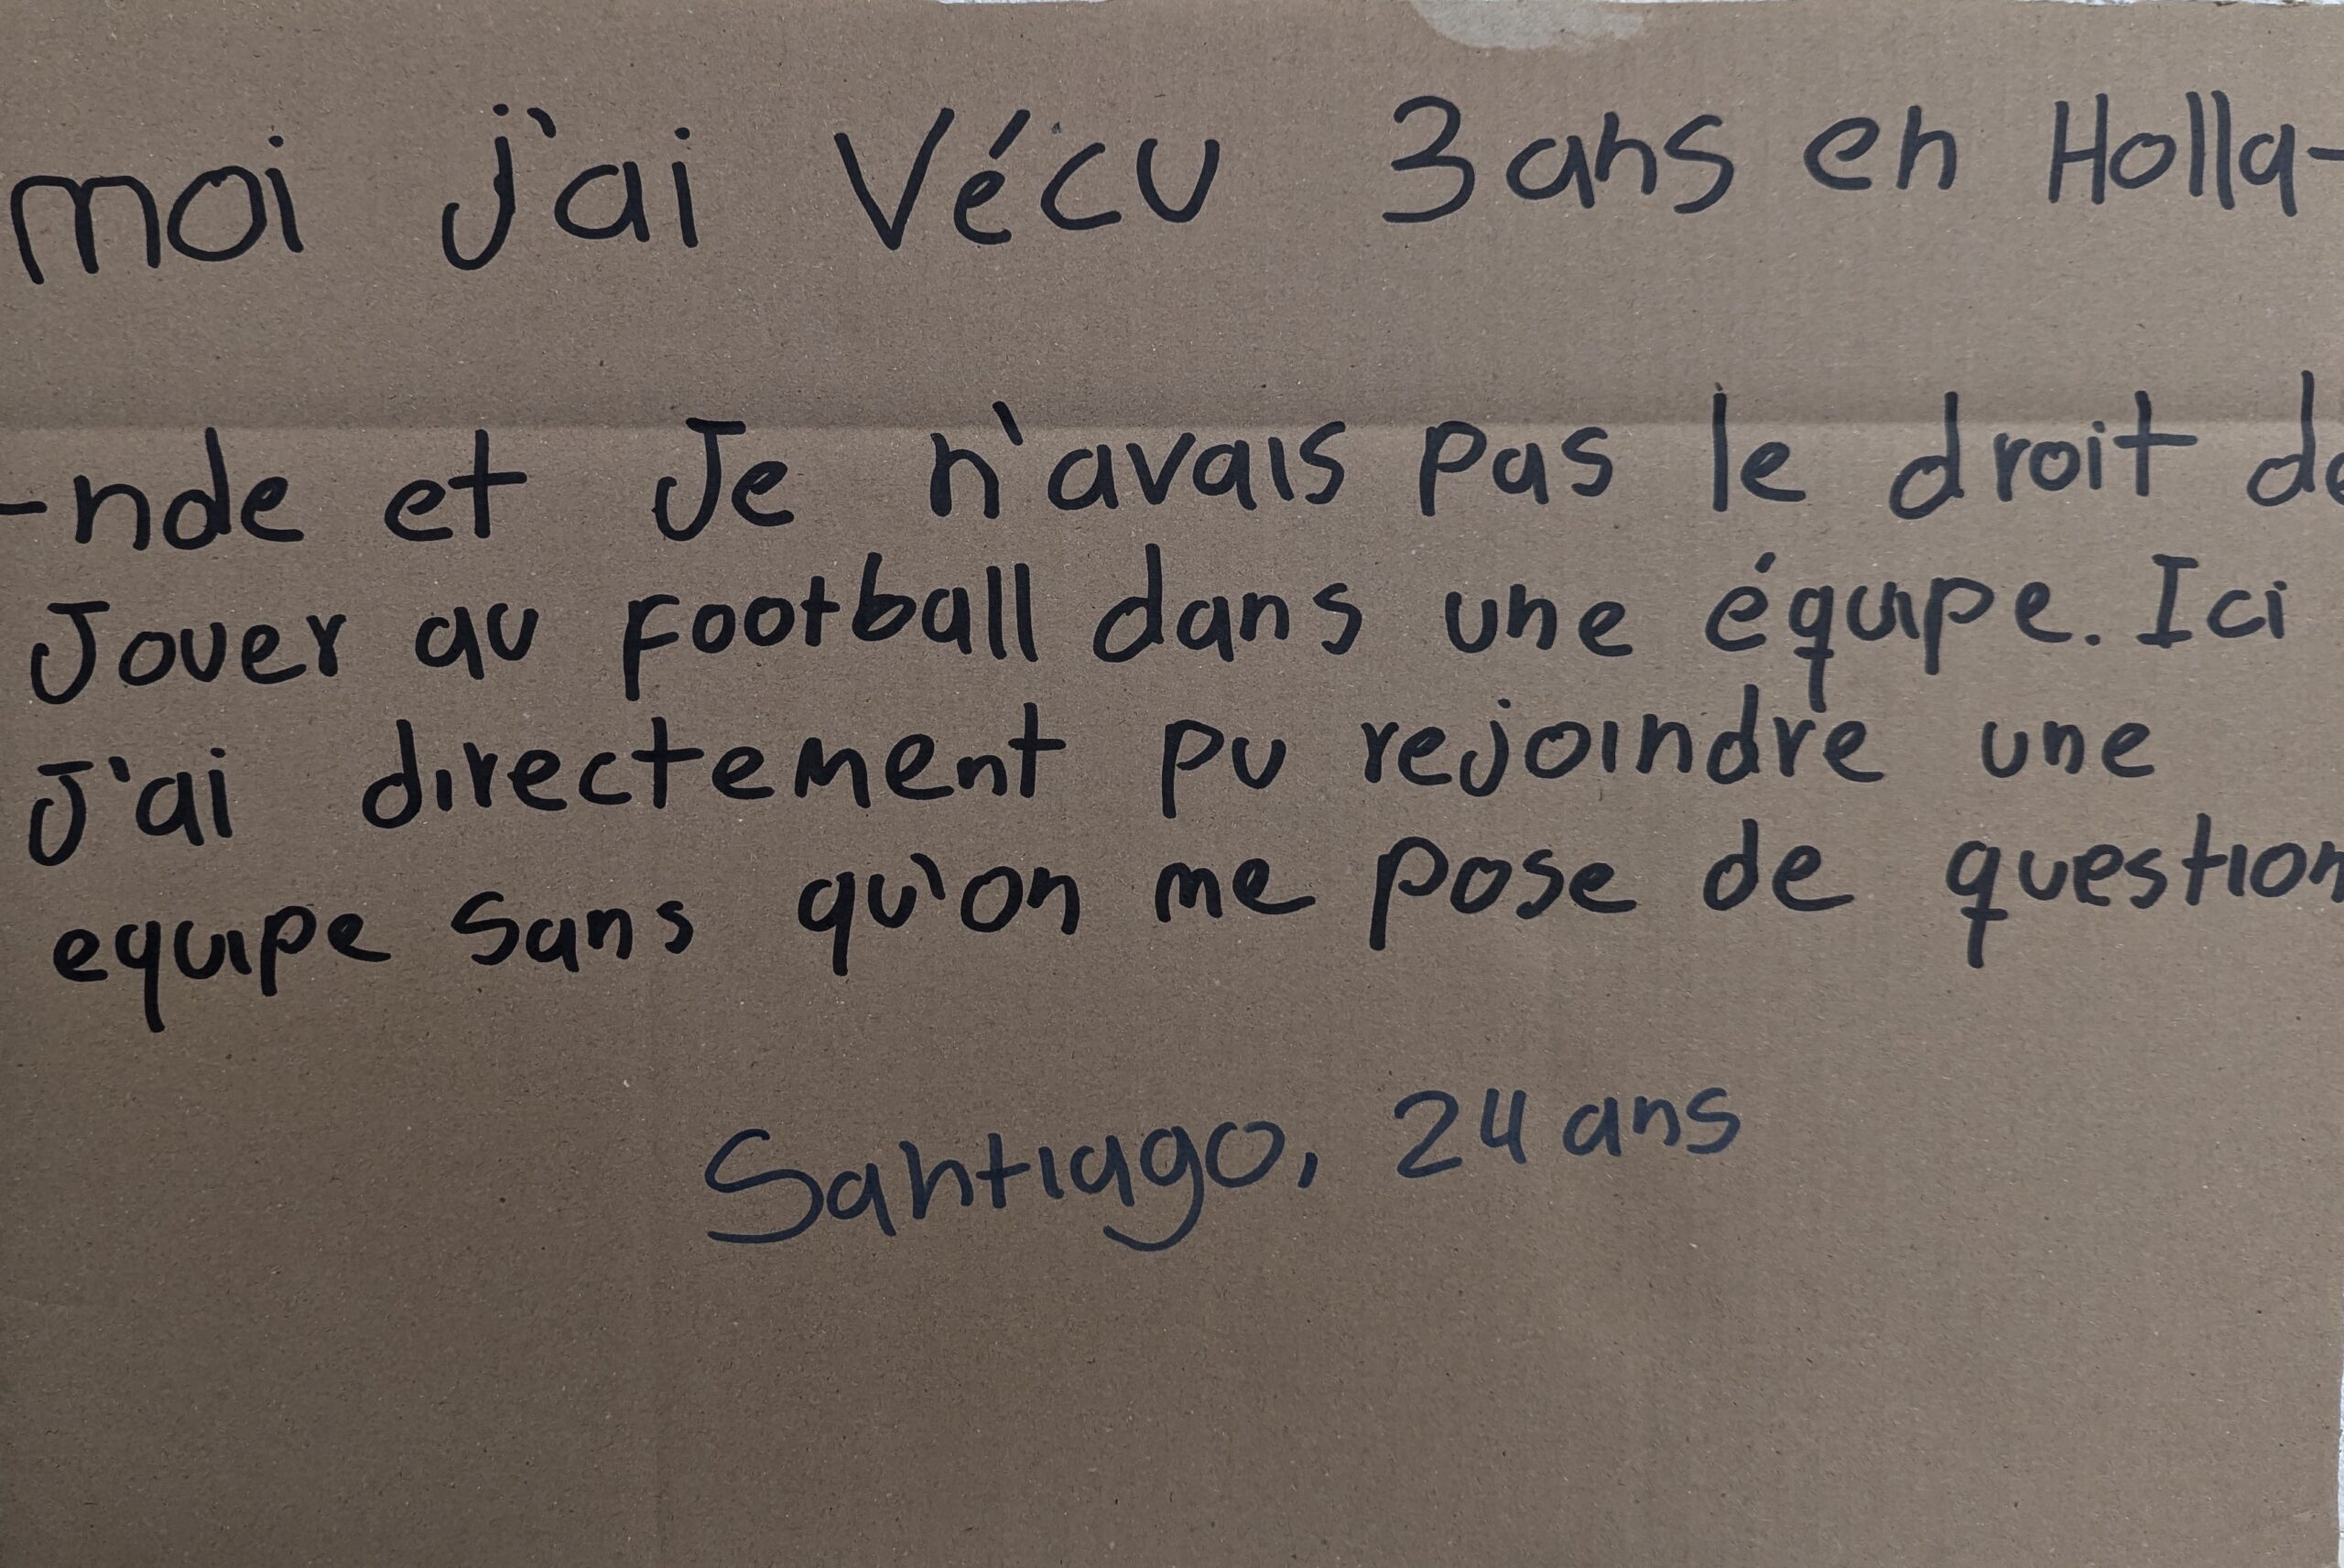 moi j'ai vécu 3 ans en Holla-
-nde et Je n'avais pas le droit de
Jouer au Football dans une équipe. Ici
J'ai directement pu rejoindre une
equipe sans qu'on me pose de question
Santiago, 24 ans